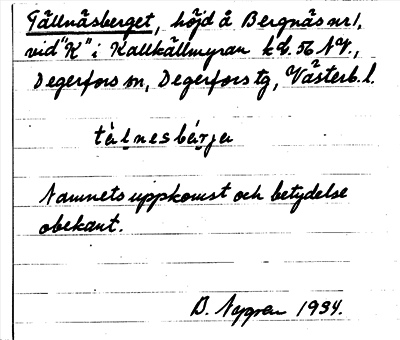 Tällnäsberget, höjd å Bergnäs nr 1,
vid "K" i Kallkällmyran kb. 56 NV.,
Degerfors sn, Degerfors tg, Västerb. l.
tèl̥nesbǽrjɘ
Namnets uppkomst och betydelse
obekant.
B. Nygren 1934.